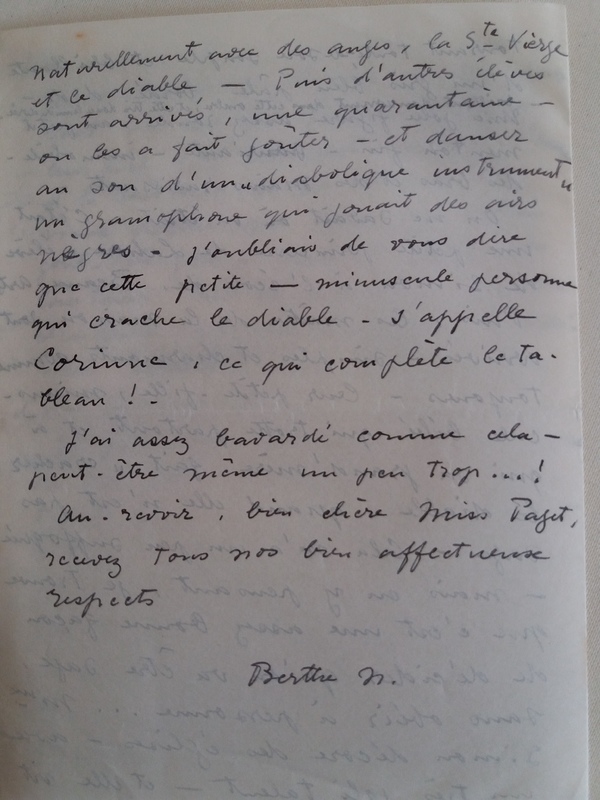 Naturellement avec des anges, la Ste Vierge
et le diable — Puis d'autres élèves
sont arrivés, une quarantaine —
on les a fait goûter — et danser
au son d'un "diabolique instrument"
un gramophone qui jouait des airs
nègres - j'oubliais de vous dire
que cette petite — minuscule personne
qui crache le diable - s'appelle
Corinne, ce qui complète le ta-
bleau ! -
J'ai assez bavardé comme cela —
peut-être même un peu trop...!
Au-revoir, bien chère Miss Paget,
recevez tous nos bien affectueux
respects
Berthe N.